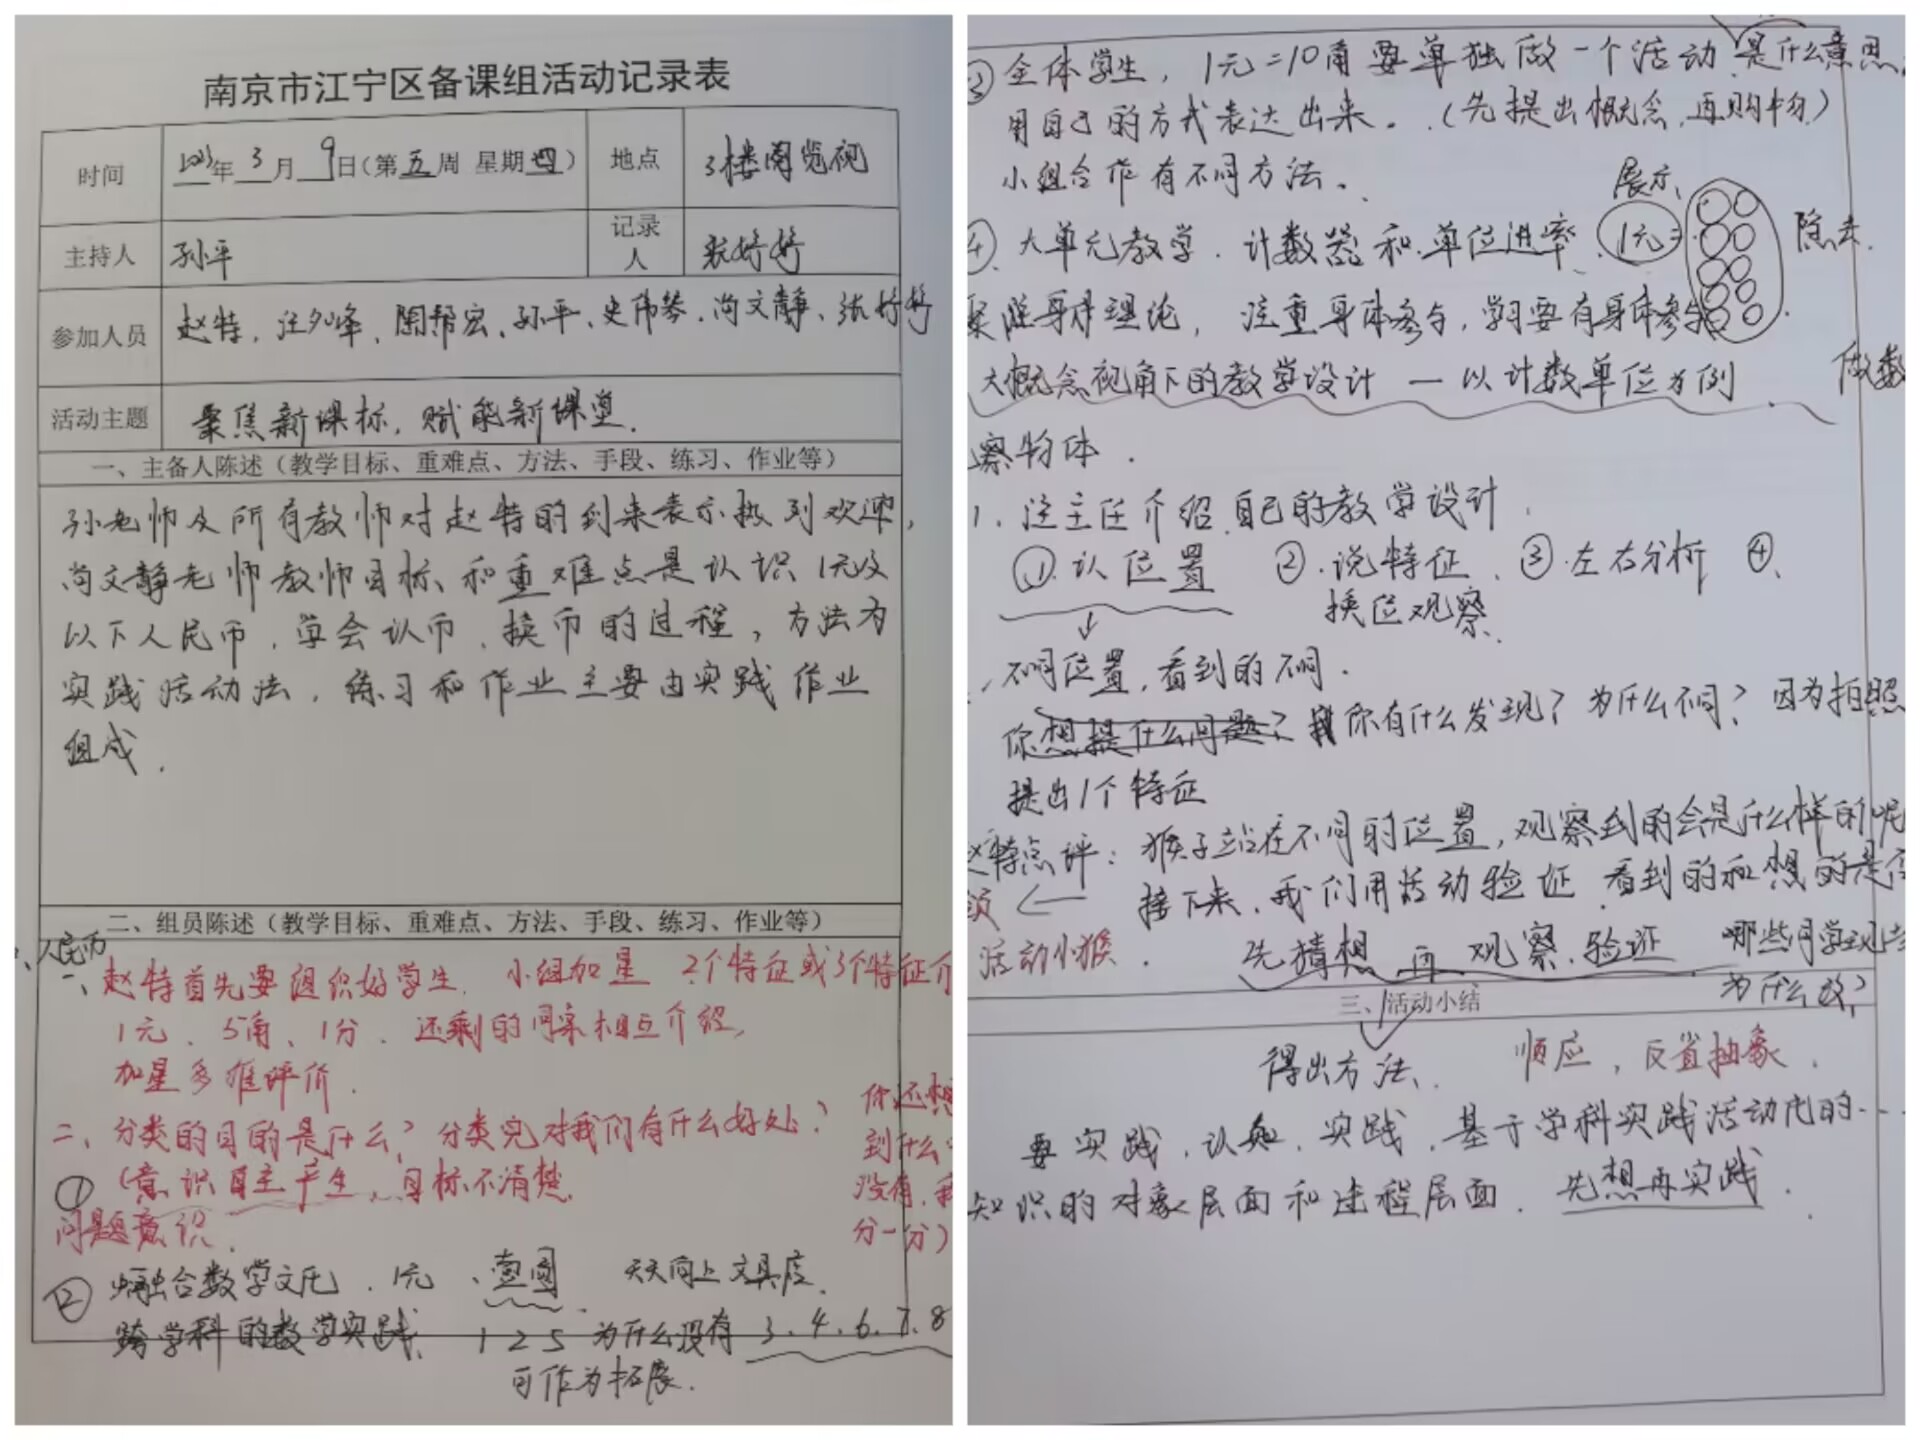 南京市江宁区备课组活动记录表
时间 2023年 3月 9日(第五周 星期四) 地点 3楼阅览视
主持人 孙平 记录人 张婷婷
参加人员 赵特、汪夕峰、陶帮宏、孙平、史伟琴、尚文静、张婷婷
活动主题 聚焦新课标,赋能新课堂.
一、主备人陈述(教学目标、重难点、方法、手段、练习、作业等)
孙老师及所有教师对赵特的到来表示热烈欢迎,
尚文静老师教师目标和重难点是认识1元及
以下人民币,学会认币、换币的过程,方法为
实践活动法,练习和作业主要由实践作业
组成.
二、组员陈述(教学目标、重难点、方法、手段、练习、作业等)
人民币
一、赵特首先要组织好学生. 小组加星 2个特征或3个特征介
1元、5角、1分. 还剩的同桌相互介绍,
加星多维评价.
二、分类的目的是什么?分类完对我们有什么好处? 你还想
到什么
(意识自主产生,目标不清楚. 没有,我
分一分)
①
问题意识.
② 融合数学文化. 1元、 天天向上文具店.
跨学科的数学实践、 1 2 5 为什么没有 3、4、6、7、8
可作为拓展.
③ 全体学生,1元=10角要单独做一个活动 是什么意思,
用自己的方式表达出来。(先提出概念,再购物)
小组合作有不同方法。 展示
④. 大单元教学. 计数器和单位进率. 1元= 隐去.
理论,注重身体参与,学习要有身体参与.
大概念视角下的教学设计 — 以计数单位为例. 做数
察物体.
1. 汪主任介绍自己的教学设计.
①.认位置 ②.说特征. ③.左右分析 ④.
换位观察.
不同位置,看到的不同.
你想提什么问题?你有什么发现?为什么不同?因为拍照
提出1个特征
赵特点评:猴子站在不同的位置,观察到的会是什么样的呢
← 接下来,我们用活动验证.看到的和想的是否
活动小猴. 先猜想 再 观察.验证. 哪些同学
为什么
三、活动小结
得出方法. 顺应,反省抽象.
要实践、认知、实践,基于学科实践活动化的…
知识的对象层面和过程层面. 先想再实践.